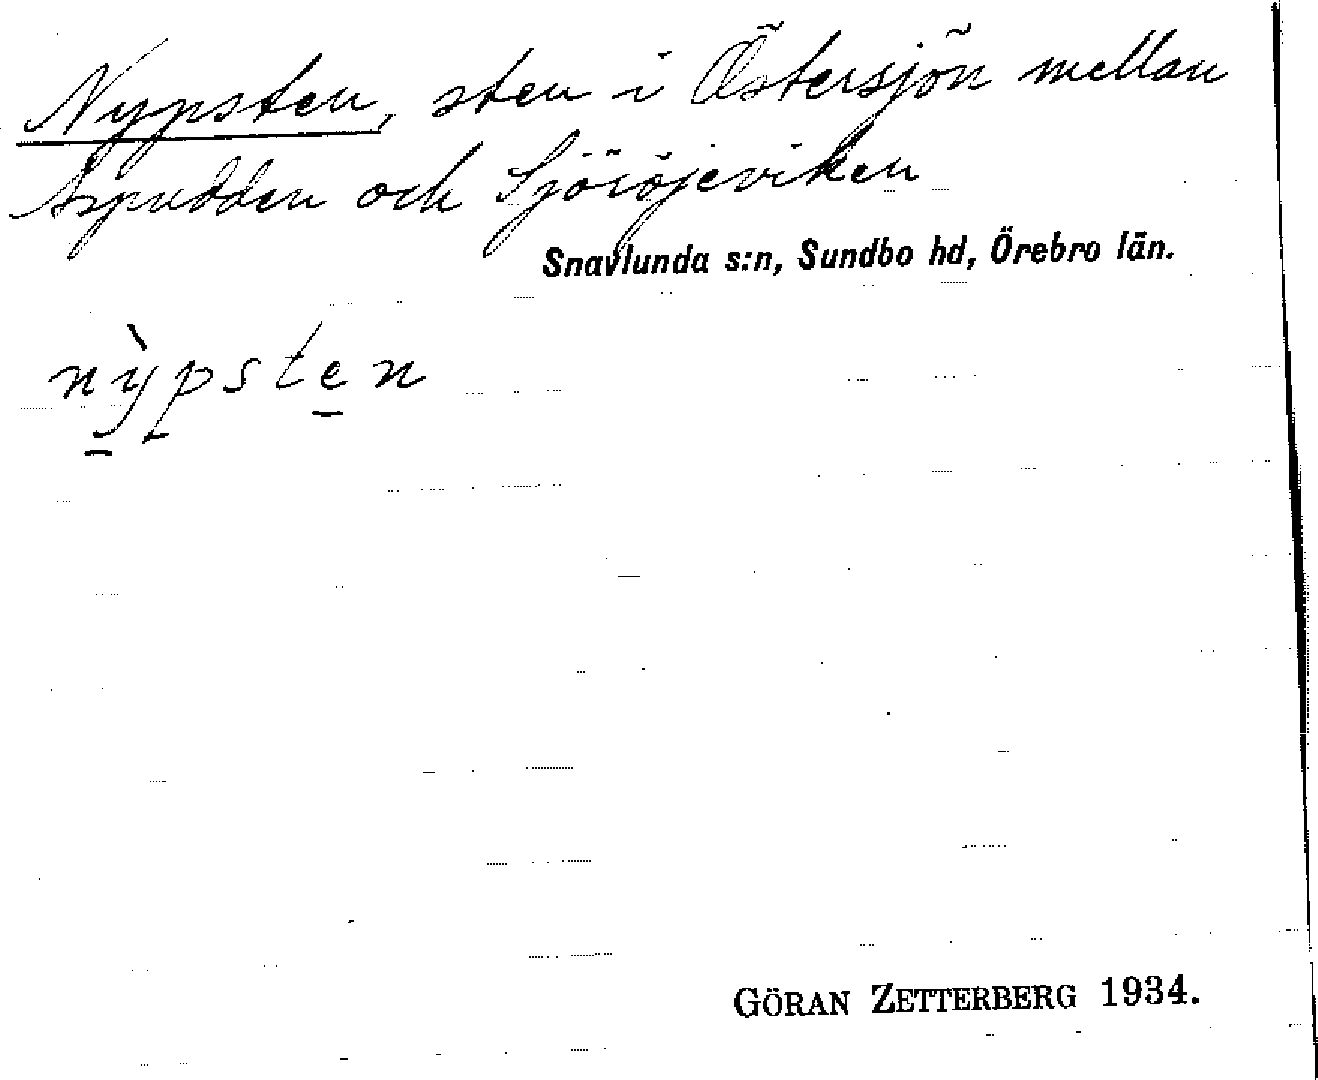 Nypsten, sten i Östersjön mellan
Aspudden och Sjöröjeviken
Snavlunda s:n, Sundbo hd, Örebro län.
nỳpsten
GÖRAN ZETTERBERG 1934.